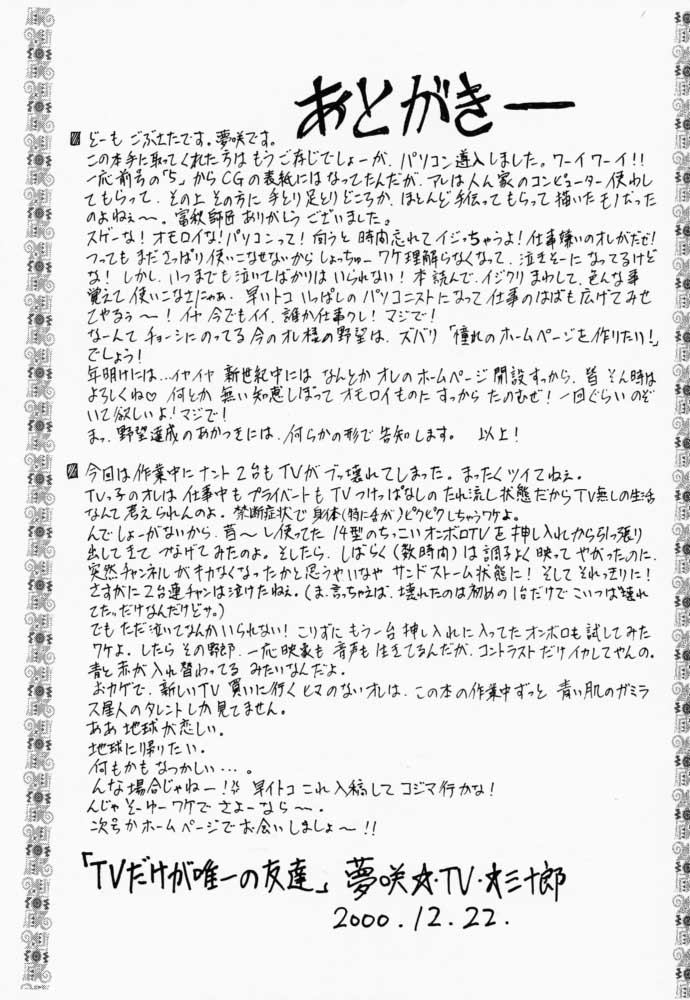 あとがきー
どーも ごぶさたです。夢咲です。
この本手に取ってくれた方は もうご存じでしょーが、パソコン導入しました。ワーイワーイ!!
一応前号の「5」からCGの表紙にはなってたんだが、アレは人ん家のコンピューター使わし
てもらって、その上その方に手とり足とりどころか、ほとんど手伝ってもらって描いたモノだった
のよねぇ〜。富秋師匠ありがとうございました。
スゲーな!オモロイな!パソコンって!向うと時間忘れてイジッちゃうよ!仕事嫌いのオレがだぜ!
つってもまださっぱり使いこなせないからしょっちゅーワケ理解らなくなって、泣きそーになってるけど
な!しかし、いつまでも泣いてばかりはいられない!本読んで、イジクリまわして、色んな事
覚えて使いこなさにゃぁ、早いトコいっぱしのパソコニストになって仕事のはばも広げてみせ
てやるぅ〜!イヤ今でもイイ、誰か仕事クレ!マジで!
なーんてチョーシにのってる今のオレ様の野望は、ズバリ「憧れのホームページを作りたい!」
でしょう!
年明けには…イヤイヤ新世紀中にはなんとかオレのホームページ開設すっから、皆そん時は
よろしくね♡ 何とか無い知恵しぼってオモロイものにすっからたのむぜ!一回ぐらいのぞ
いて欲しいよ!マジで!
まっ、野望達成のあかつきには、何らかの形で告知します。 以上!
今回は作業中にナント2台もTVがブッ壊れてしまった。まったくツイてねぇ。
TVっ子のオレは仕事中もプライベートもTVつけっぱなしのたれ流し状態だからTV無しの生活
なんて考えられんのよ。禁断症状で身体(特に舌が)ピクピクしちゃうワケよ。
んでしょーがないから、昔〜し使ってた14型のちっこいオンボロTVを押し入れから引っ張り
出してきてつなげてみたのよ。そしたら、しばらく(数時間)は調子よく映ってやがったのに、
突然チャンネルがキカなくなったかと思うやいなやサンドストーム状態に!そしてそれっきりに!
さすがに2台連チャンは泣けたねぇ。(ま、言っちゃえば、壊れたのは初めの1台だけでこいつは"壊れ
てたっ"だけなんだけどサ。)
でもただ泣いてなんかいられない!こりずにもう一台押し入れに入ってたオンボロも試してみた
ワケよ。したらその野郎、一応映像も音声も生きてるんだが、コントラストだけイカレてやんの。
青と赤が入れ替わってるみたいなんだよ。
おカゲで、新しいTV買いに行くヒマのないオレは、この本の作業中ずっと青い肌のガミラ
ス星人のタレントしか見てません。
ああ地球が恋しい。
地球に帰りたい。
何もかもなつかしい…。
んな場合じゃねー!早イトコこれ入稿してコジマ行かな!
んじゃそーゆーワケでさよーなら〜。
次号かホームページでお会いしましょ〜!!
「TVだけが唯一の友達」夢咲☆・TV・☆三十郎
2000.12.22.